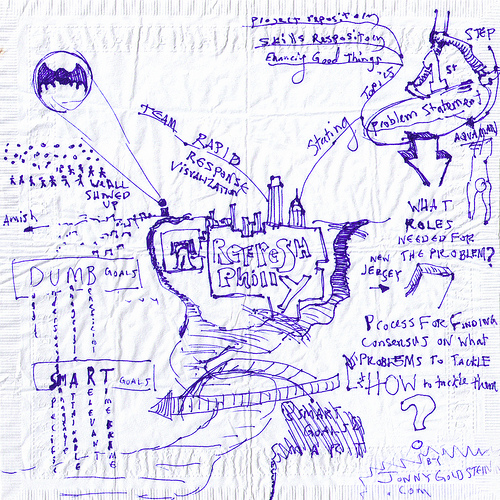 Project repository
Skills Respository
Enhancing Good Things
Topics
Stating
STEP
1st
Problem Statement
AQUAMAN
TEAM RAPID
RESPONSE
VISUALIZATION
WE ALL
SHOWED
UP
Amish
Refresh
Philly
WHAT
ROLES
NEEDED FOR
THE PROBLEM?
NEW
JERSEY
DUMB GOALS
SMART GOALS
Specific
Measurable
Attainable
Relevant
Time Frame
Process For Finding
consensus on what
PROBLEMS TO TACKLE
& HOW to tackle them
?
SMART
GOALS
BY
JONNY GOLDSTEIN
.COM